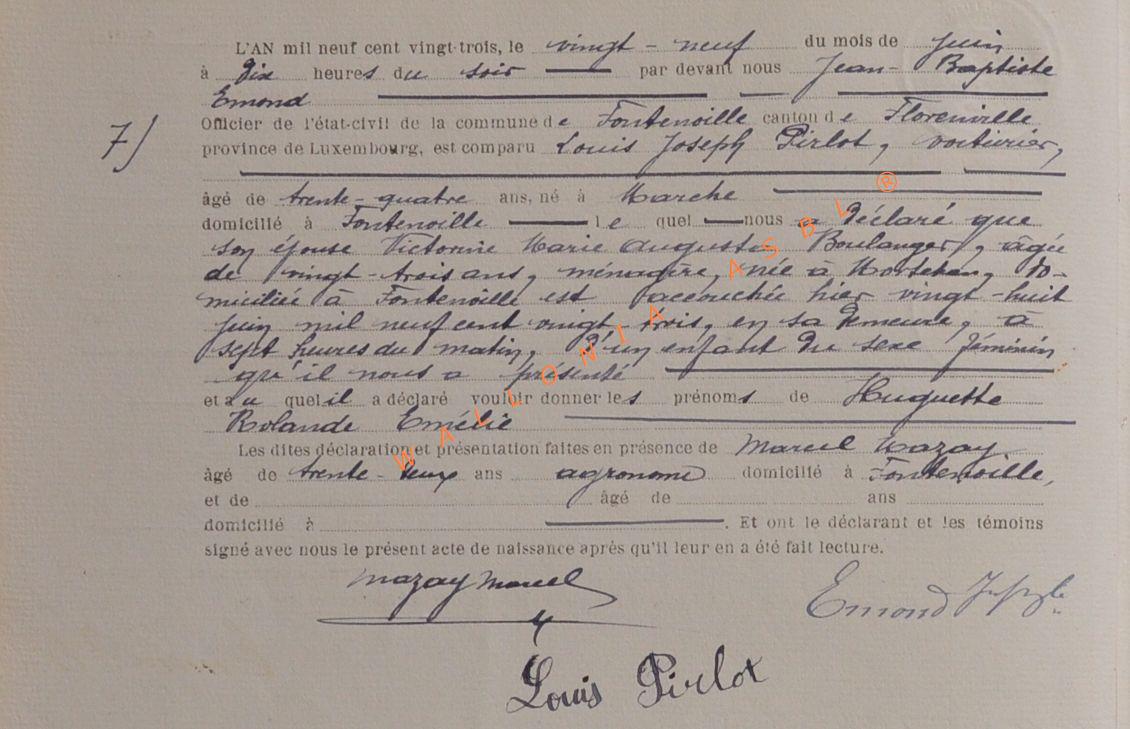 L'AN mil neuf cent vingt-trois, le vingt-neuf du mois de Juin
à dix heures du soir par devant nous Jean-Baptiste
Emond
7) Officier de l'état-civil de la commune de Fontenoille canton de Florenville
province de Luxembourg, est comparu Louis Joseph Pirlot, voiturier,
âgé de trente-quatre ans, né à Marche
domicilié à Fontenoille le quel nous a déclaré que
son épouse Victorine Marie Augustine Boulanger, âgée
de vingt-trois ans, ménagère, née à Mortehan, do-
miciliée à Fontenoille est accouchée hier vingt-huit
Juin mil neuf cent vingt trois, en sa demeure, à
sept heures du matin, d'un enfant du sexe féminin
qu'il nous a présenté
et au quel il a déclaré vouloir donner les prénoms de Huguette
Rolande Emélie
Les dites déclaration et présentation faites en présence de Marcel Mazay
âgé de trente-deux ans agronome domicilié à Fontenoille,
et de âgé de ans
domicilié à . Et ont le déclarant et les témoins
signé avec nous le présent acte de naissance après qu'il leur en a été fait lecture.
Mazay Marcel
Emond
Louis Pirlot
WALLONIA ASBL ®